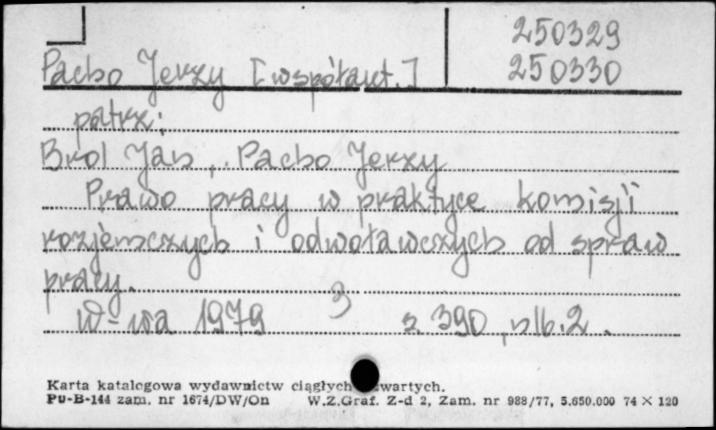 250329
Pacho Jerzy [współaut.] 250330
patrz:
Brol Jan, Pacho Jerzy
Prawo pracy w praktyce komisji
rozjemczych i odwoławczych od spraw
pracy.
W-wa 1979 s 390, nlb. 2.
Karta katalogowa wydawnictw ciągłych zwartych.
Pu-B-144 zam. nr 1674/DW/On W.Z.Graf. Z-d 2, Zam. nr 988/77, 5.650.000 74 × 120